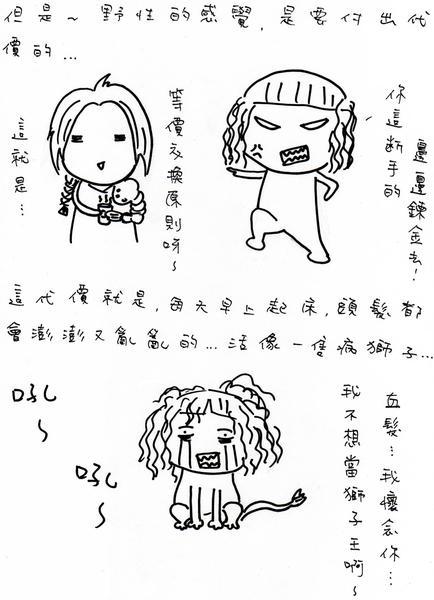 但是~野性的感覺,是要付出代
價的...
這就是...
等價交換原則呀~
你這斷手的
邊邊鍊金去!
這代價就是,每天早上起床,頭髮都
會澎澎又亂亂的...活像一隻病獅子...
吼~
吼~
直髮...我懷念你...
我不想當獅子王啊~